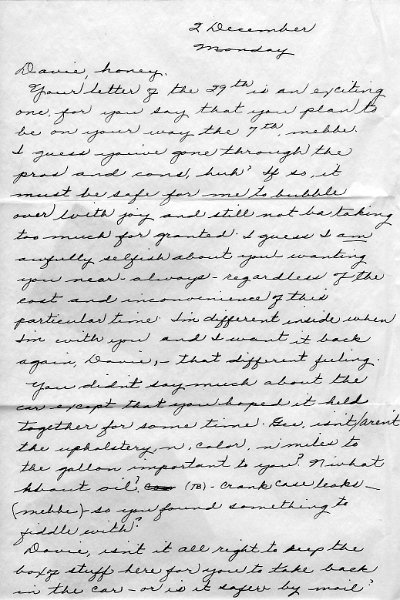 2 December
Monday
Davie, honey.
Your letter of the 29th is an exciting
one, for you say that you plan to
be on your way the 7th, mebbe.
I guess you've gone through the
pros and cons, huh? If so, it
must be safe for me to bubble
over with joy and still not be taking
too much for granted. I guess I am
awfully selfish about you wanting
you near always - regardless of the
cost and inconvenience of this
particular time. I'm different inside when
I'm with you and I want it back
again, Davie, - that different feeling.
You didn't say much about the
car except that you hoped it held
together for some time. Gee, isn't/aren't
the upholstery, n, color, n miles to
the gallon important to you? N what
about oil? (TB) - crank case leaks -
(mebbe) - so you found something to
fiddle with?
Davie, isn't it all right to keep the
box of stuff here for you to take back
in the car - or is it safer by mail?